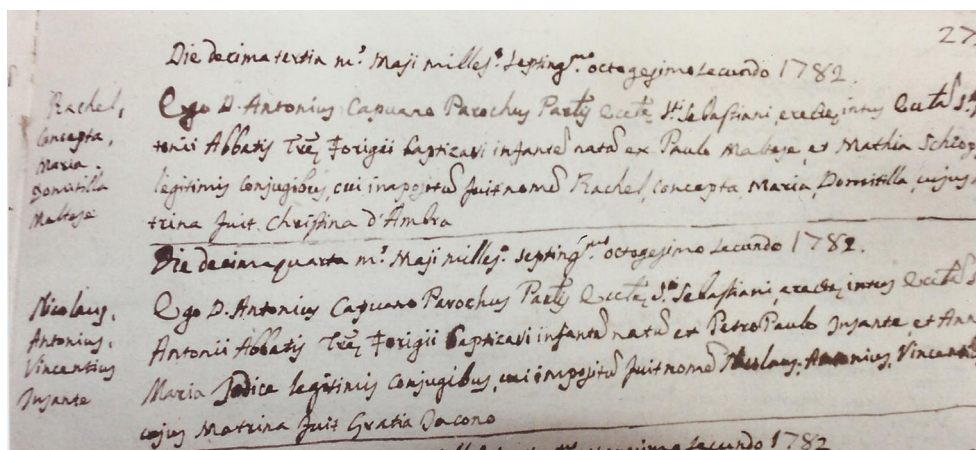 27
Die decima tertia m.s Maji milles.o septing.mo octogesimo secundo 1782.
Rachel,
Concepta,
Maria,
Domitilla
Maltese
Ego D. Antonius Capuano Parochus Par.lis Eccl.æ S.ti Sebastiani, erectæ, intus Eccl.a
tonii Abbatis Træ Forigii baptizavi infante natū ex Paulo Maltese, et Mathia Schiop
legitimis conjugibus, cui impositū fuit nomē Rachel, Concepta, Maria, Domitilla, cujus
trina fuit Christina d'Ambra
Die decima quarta m.s Maji milles.o septing.mo octogesimo secundo 1782.
Nicolaus,
Antonius,
Vincentius
Infante
Ego D. Antonius Capuano Parochus Par.lis Eccl.æ S.ti Sebastiani, erectæ, intus Eccl.a
Antonii Abbatis Træ Forigii baptizavi infantē natū ex Petro Paulo Infante et Ann
Maria Jodice legitimis conjugibus, cui impositū fuit nomē Nicolaus, Antonius, Vincenti
cujus Matrina fuit Gratia Jacono
secundo 1782